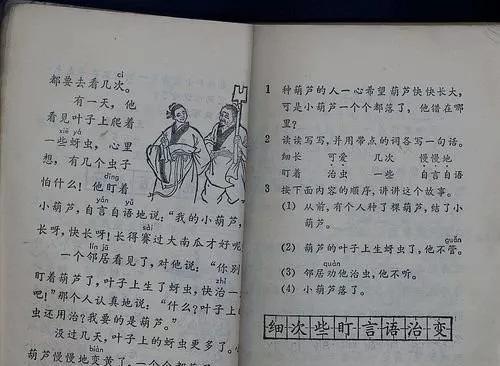 cì
都要去看几次。
有一天,他
看见叶子上爬着
xiē yá
一些蚜虫,心里
想,有几个虫子
dīng
怕什么!他盯着
小葫芦,自言自语地说:“我的小葫芦,
sài
长呀,快长呀!长得赛过大南瓜才好呢
lín jū
一个邻居看见了,对他说:“你别
zhì
盯着葫芦了,叶子上生了蚜虫,快治一
吧!”那个人认真地说:“什么?叶子上
虫还用治?我要的是葫芦。”
没过几天,叶子上的蚜虫更多了。小
biàn
葫芦慢慢地变黄了,一个个都
1 种葫芦的人一心希望葫芦快快长大,
可是小葫芦一个个都落了,他错在哪
里?
2 读读写写,并用带点的词各写一句话。
细长 可爱 几次 慢慢地
盯着 治虫 一些 自言自语
3 按下面内容的顺序,讲讲这个故事。
(1) 从前,有个人种了棵葫芦,结了小
葫芦。
guǎn
(2) 葫芦的叶子上生蚜虫了,他不管。
quàn
(3) 邻居劝他治虫,他不听。
(4) 小葫芦落了。
细次些盯言语治变